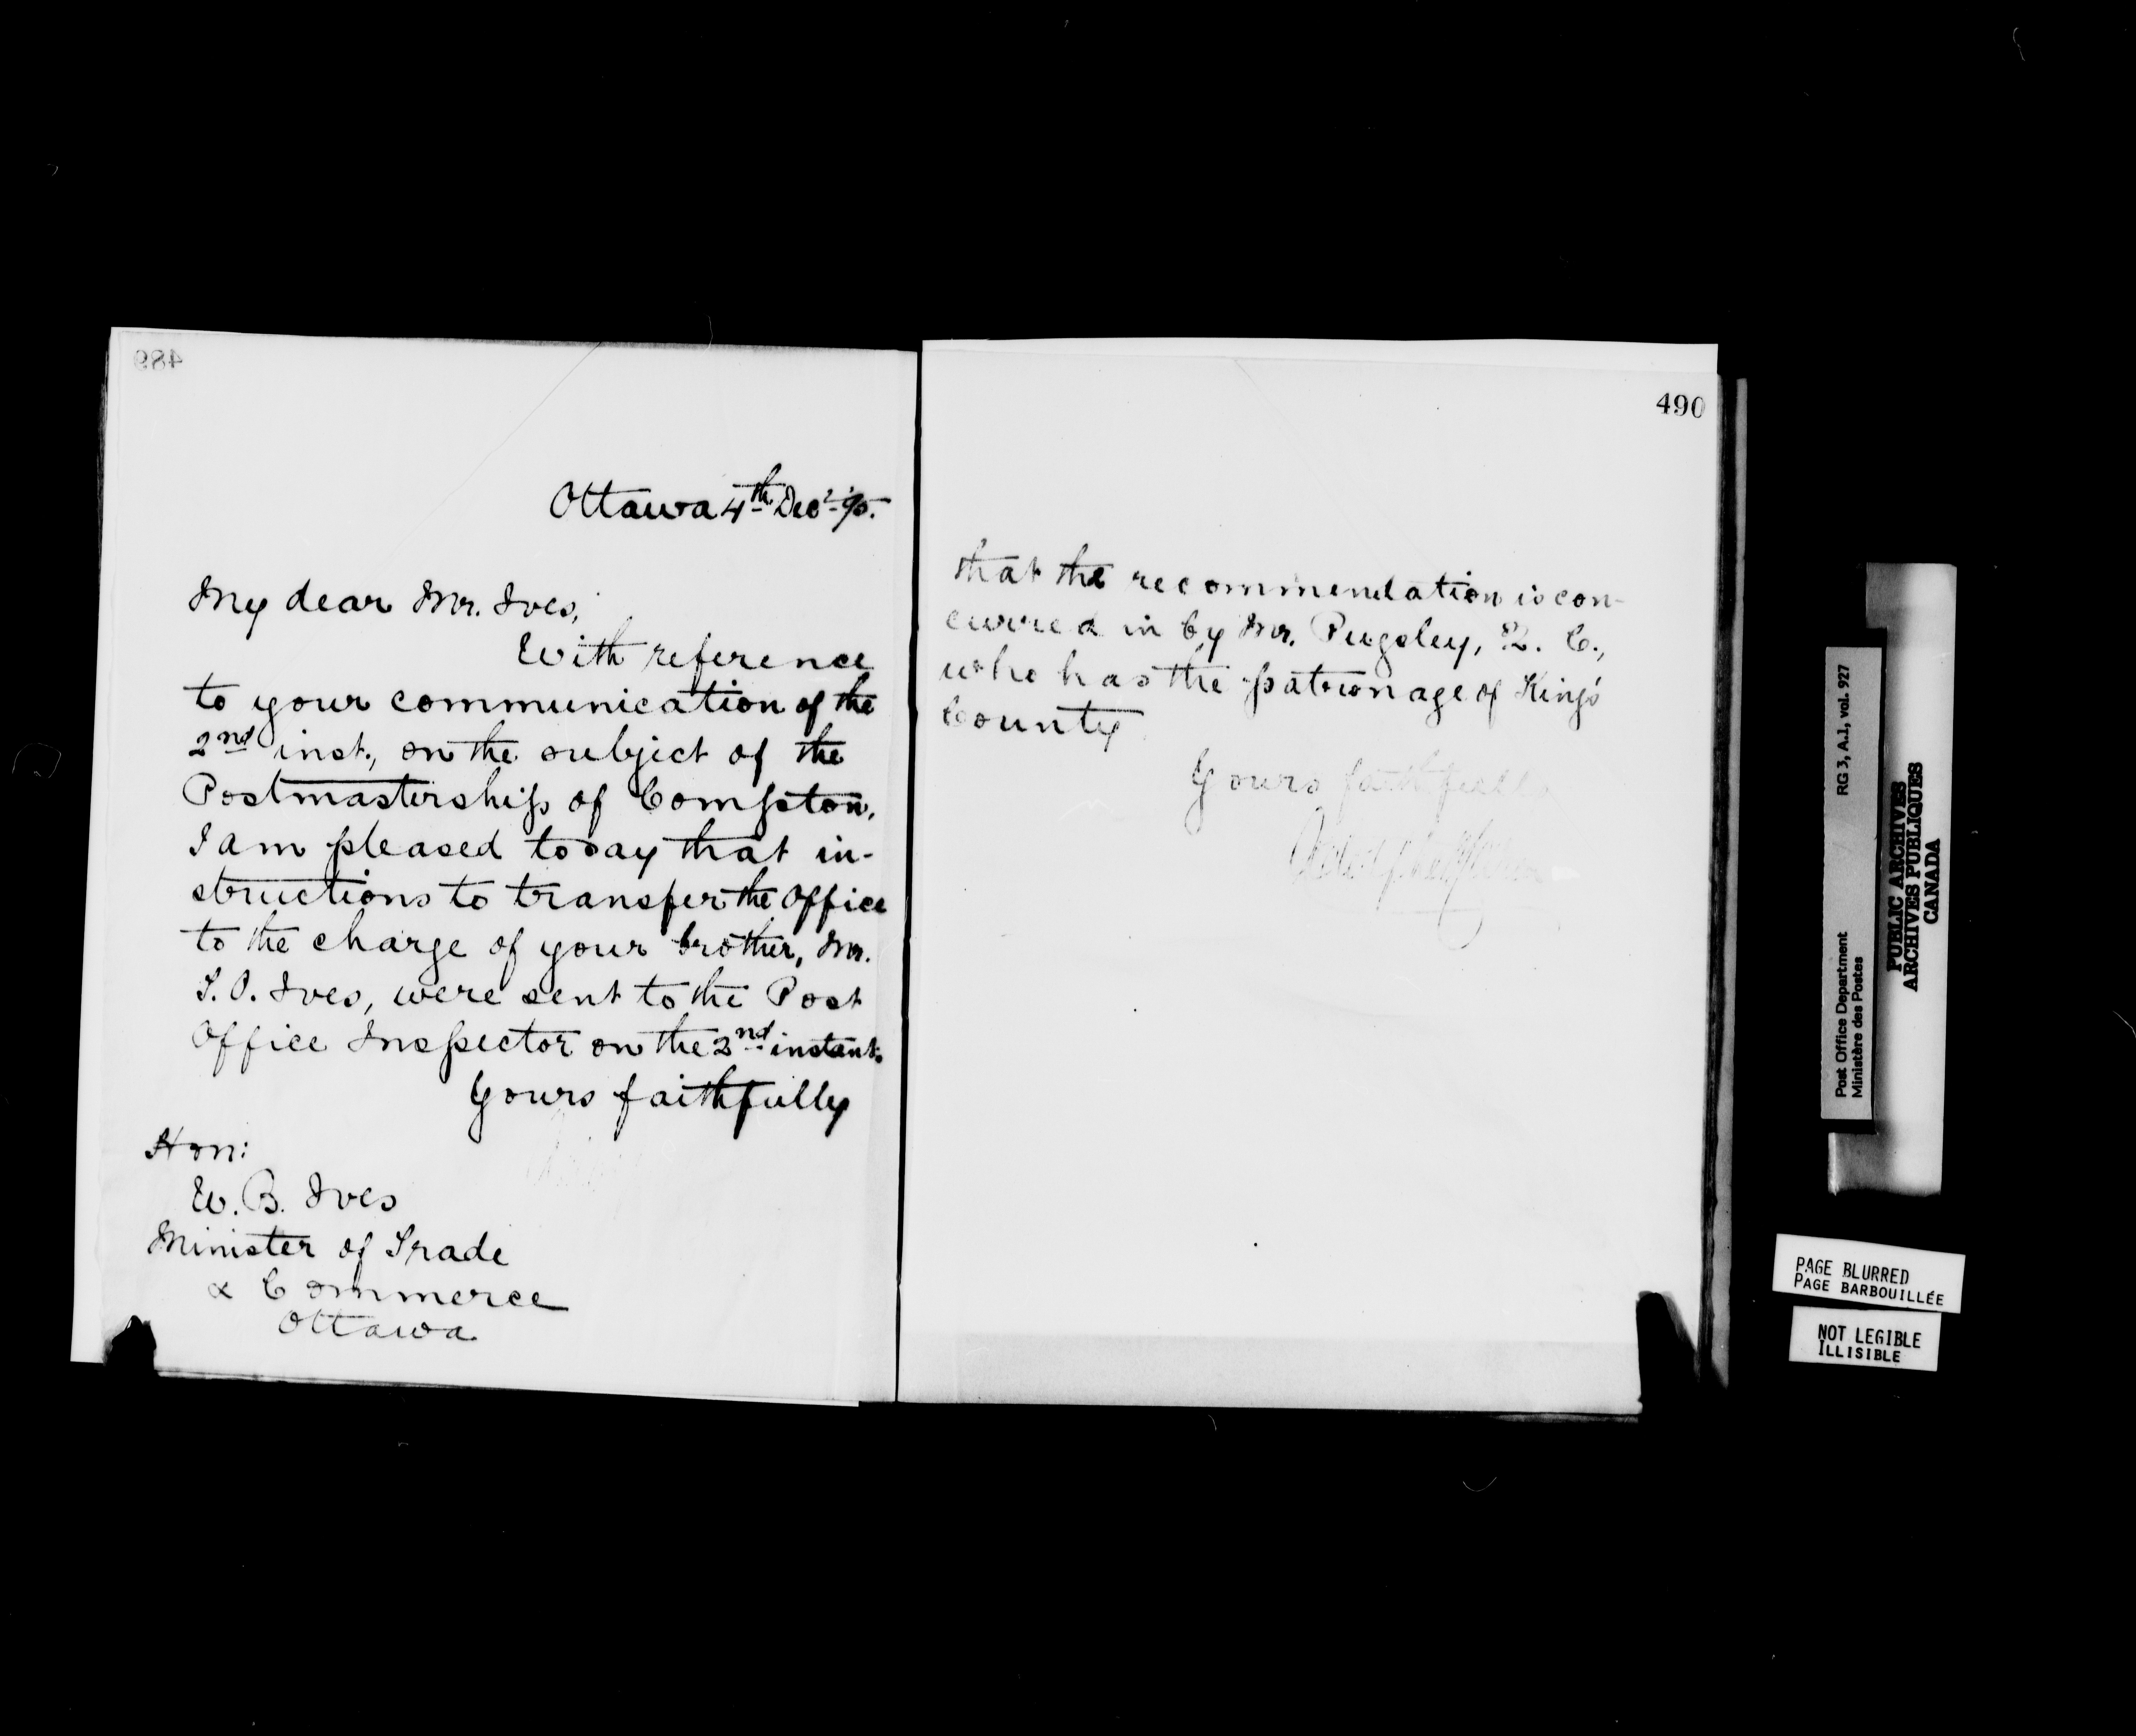 489
Ottawa 4th Decr '95.
My dear Mr. Ives,
With reference
to your communication of the
2nd inst., on the subject of the
Postmastership of Compton,
I am pleased to say that in-
structions to transfer the Office
to the charge of your brother, Mr.
S. O. Ives, were sent to the Post
Office Inspector on the 2nd instant.
Yours faithfully
Hon:
W. B. Ives
Minister of Trade
& Commerce
Ottawa
490
that the recommendation is con-
curred in by Mr. Pugsley, Q. C.,
who has the patronage of King's
County
Yours faithfully
RG 3, A.1, vol. 927
Post Office Department
Ministère des Postes
PUBLIC ARCHIVES
ARCHIVES PUBLIQUES
CANADA
PAGE BLURRED
PAGE BARBOUILLÉE
NOT LEGIBLE
ILLISIBLE